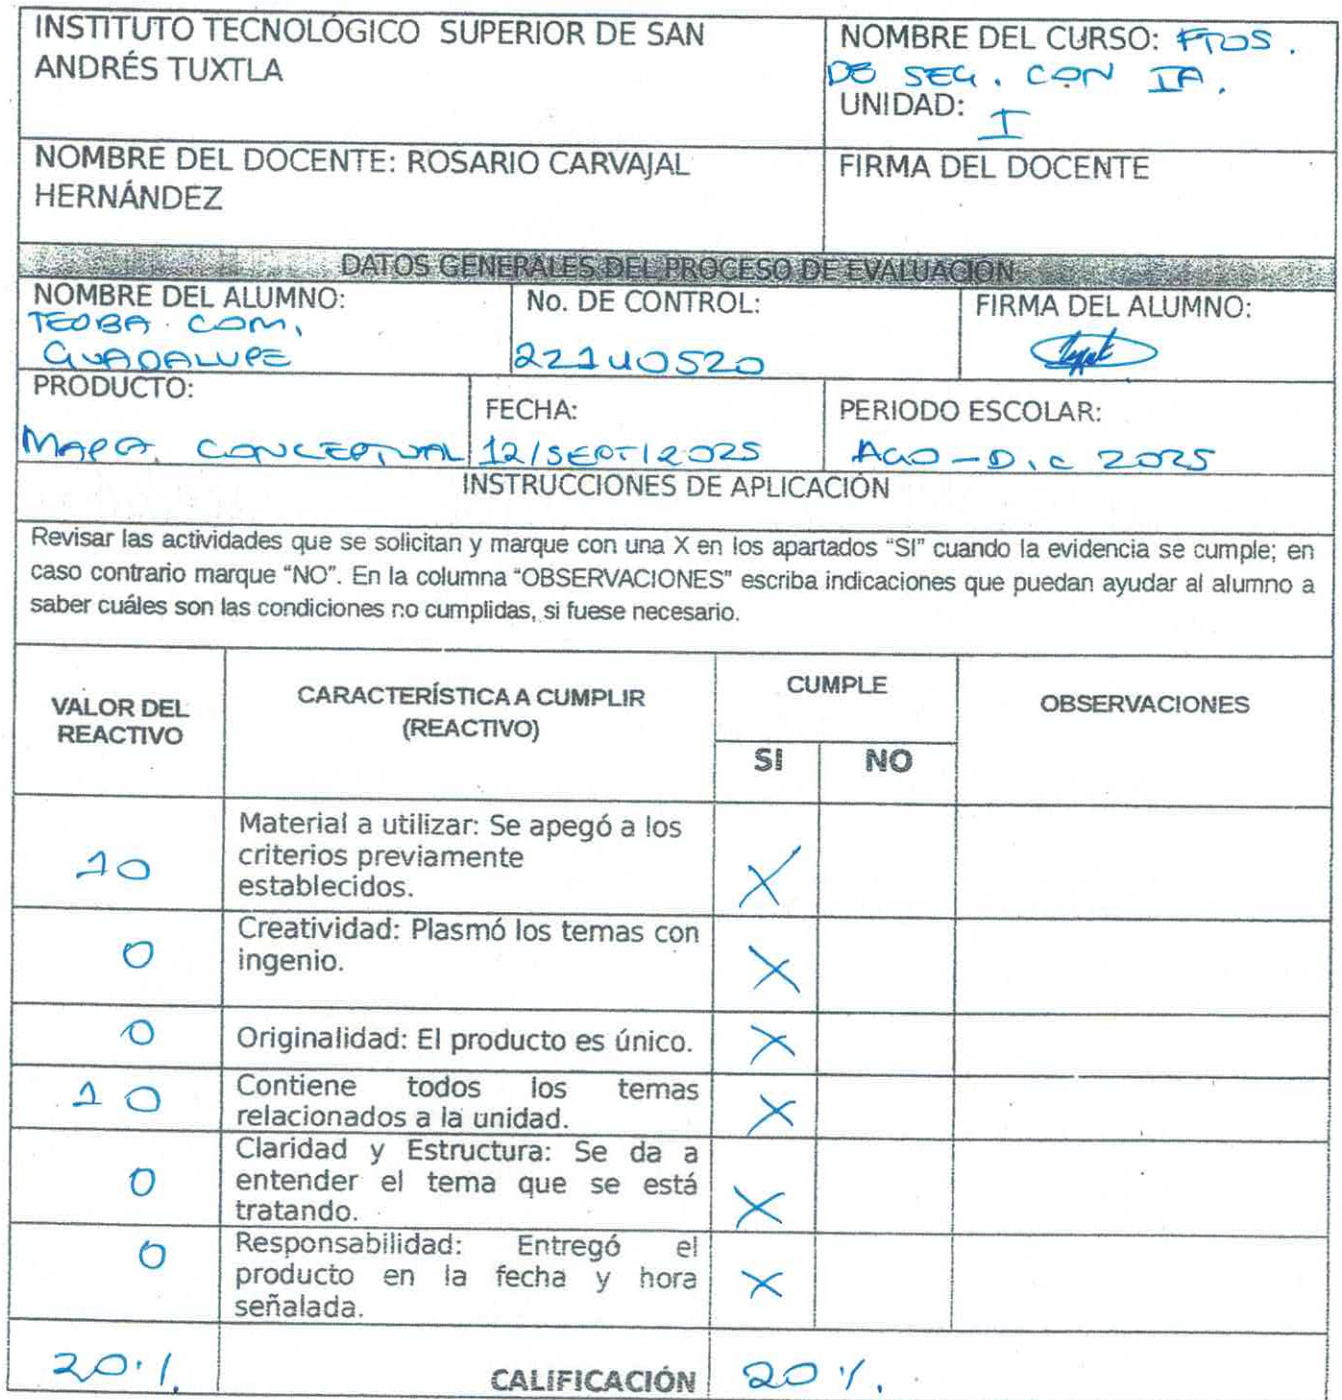 INSTITUTO TECNOLÓGICO SUPERIOR DE SAN
ANDRÉS TUXTLA
NOMBRE DEL CURSO: FTOS.
DE SEG. CON IA.
UNIDAD: I
NOMBRE DEL DOCENTE: ROSARIO CARVAJAL
HERNÁNDEZ
FIRMA DEL DOCENTE
DATOS GENERALES DEL PROCESO DE EVALUACIÓN
NOMBRE DEL ALUMNO:
TEOBA COM.
GUADALUPE
No. DE CONTROL:
221U0520
FIRMA DEL ALUMNO:
PRODUCTO:
MAPA CONCEPTUAL
FECHA:
12/SEPT/2025
PERIODO ESCOLAR:
AGO-DIC 2025
INSTRUCCIONES DE APLICACIÓN
Revisar las actividades que se solicitan y marque con una X en los apartados “SI” cuando la evidencia se cumple; en
caso contrario marque “NO”. En la columna “OBSERVACIONES” escriba indicaciones que puedan ayudar al alumno a
saber cuáles son las condiciones no cumplidas, si fuese necesario.
VALOR DEL
REACTIVO
CARACTERÍSTICA A CUMPLIR
(REACTIVO)
CUMPLE
SI
NO
OBSERVACIONES
10
Material a utilizar: Se apegó a los
criterios previamente
establecidos.
X
0
Creatividad: Plasmó los temas con
ingenio.
X
0
Originalidad: El producto es único.
X
10
Contiene todos los temas
relacionados a la unidad.
X
0
Claridad y Estructura: Se da a
entender el tema que se está
tratando.
X
0
Responsabilidad: Entregó el
producto en la fecha y hora
señalada.
X
20%
CALIFICACIÓN
20%.